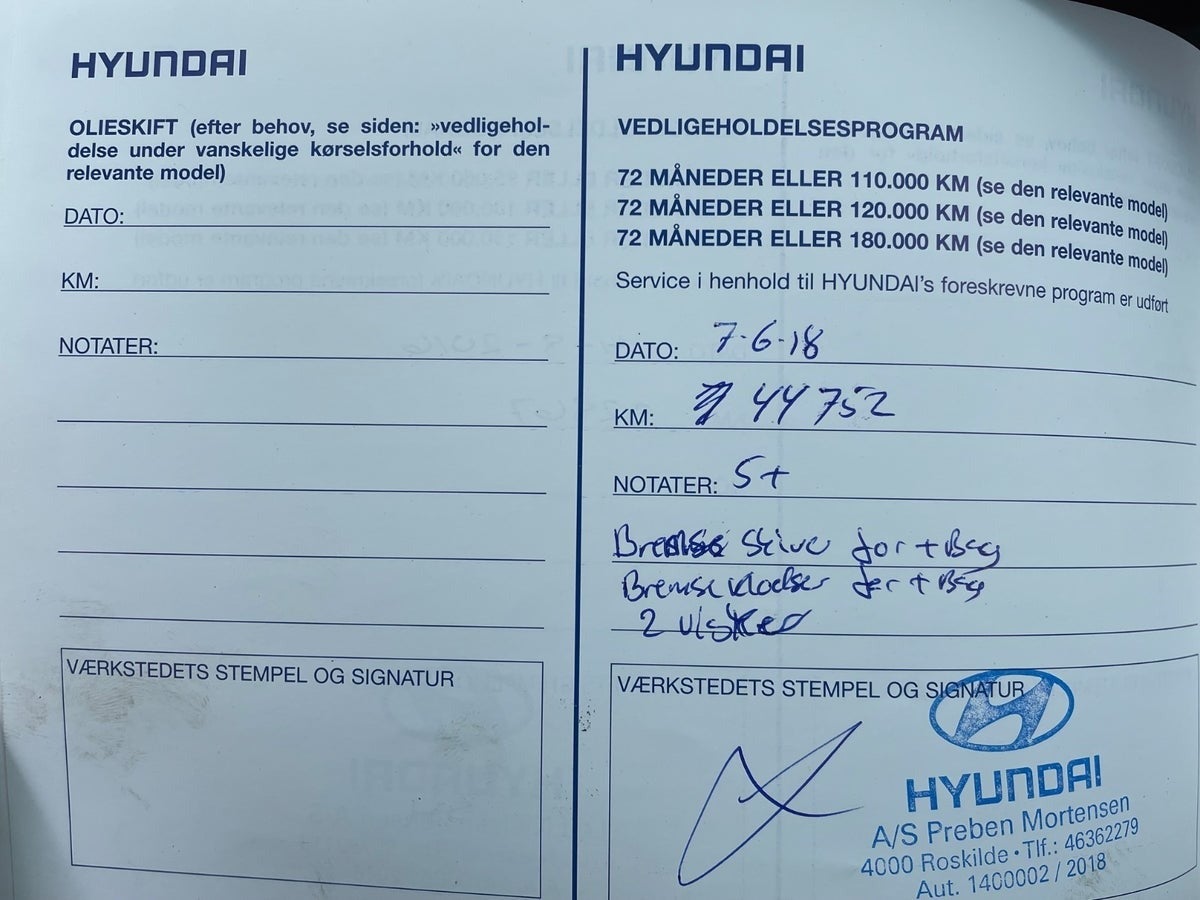 HYUNDAI
OLIESKIFT (efter behov, se siden: »vedligehol-
delse under vanskelige kørselsforhold« for den
relevante model)
DATO:
KM:
NOTATER:
VÆRKSTEDETS STEMPEL OG SIGNATUR
HYUNDAI
VEDLIGEHOLDELSESPROGRAM
72 MÅNEDER ELLER 110.000 KM (se den relevante model)
72 MÅNEDER ELLER 120.000 KM (se den relevante model)
72 MÅNEDER ELLER 180.000 KM (se den relevante model)
Service i henhold til HYUNDAI's foreskrevne program er udført
DATO: 7-6-18
KM: 44752
NOTATER: S+
Bremse skiver for + Bag
Bremseklodser for + Bag
2 visker
VÆRKSTEDETS STEMPEL OG SIGNATUR
HYUNDAI
A/S Preben Mortensen
4000 Roskilde • Tlf.: 46362279
Aut. 1400002 / 2018